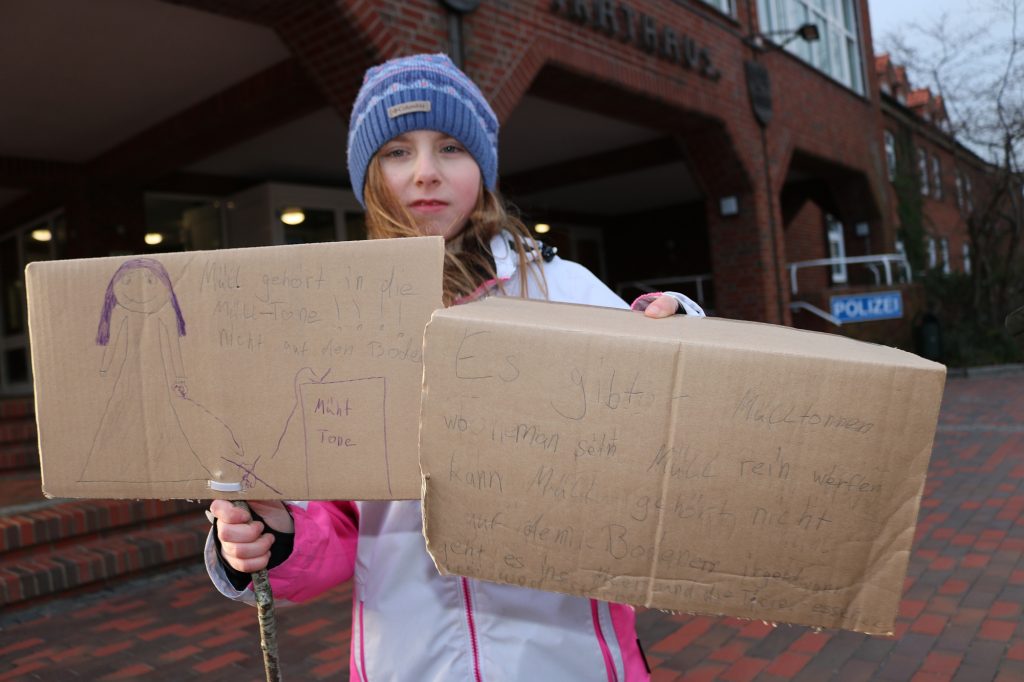 RATHAUS
Columbia
POLIZEI
Müll gehört in die
Müll-Tone !!!!
nicht auf den Böde
Müht
Tone
Es gibt Mülltonnen
wo jeman sein Müll rein werfen
kann Müll gehört nicht
auf dem Bodenen irgendwan
geht es ins und die Tiere essen